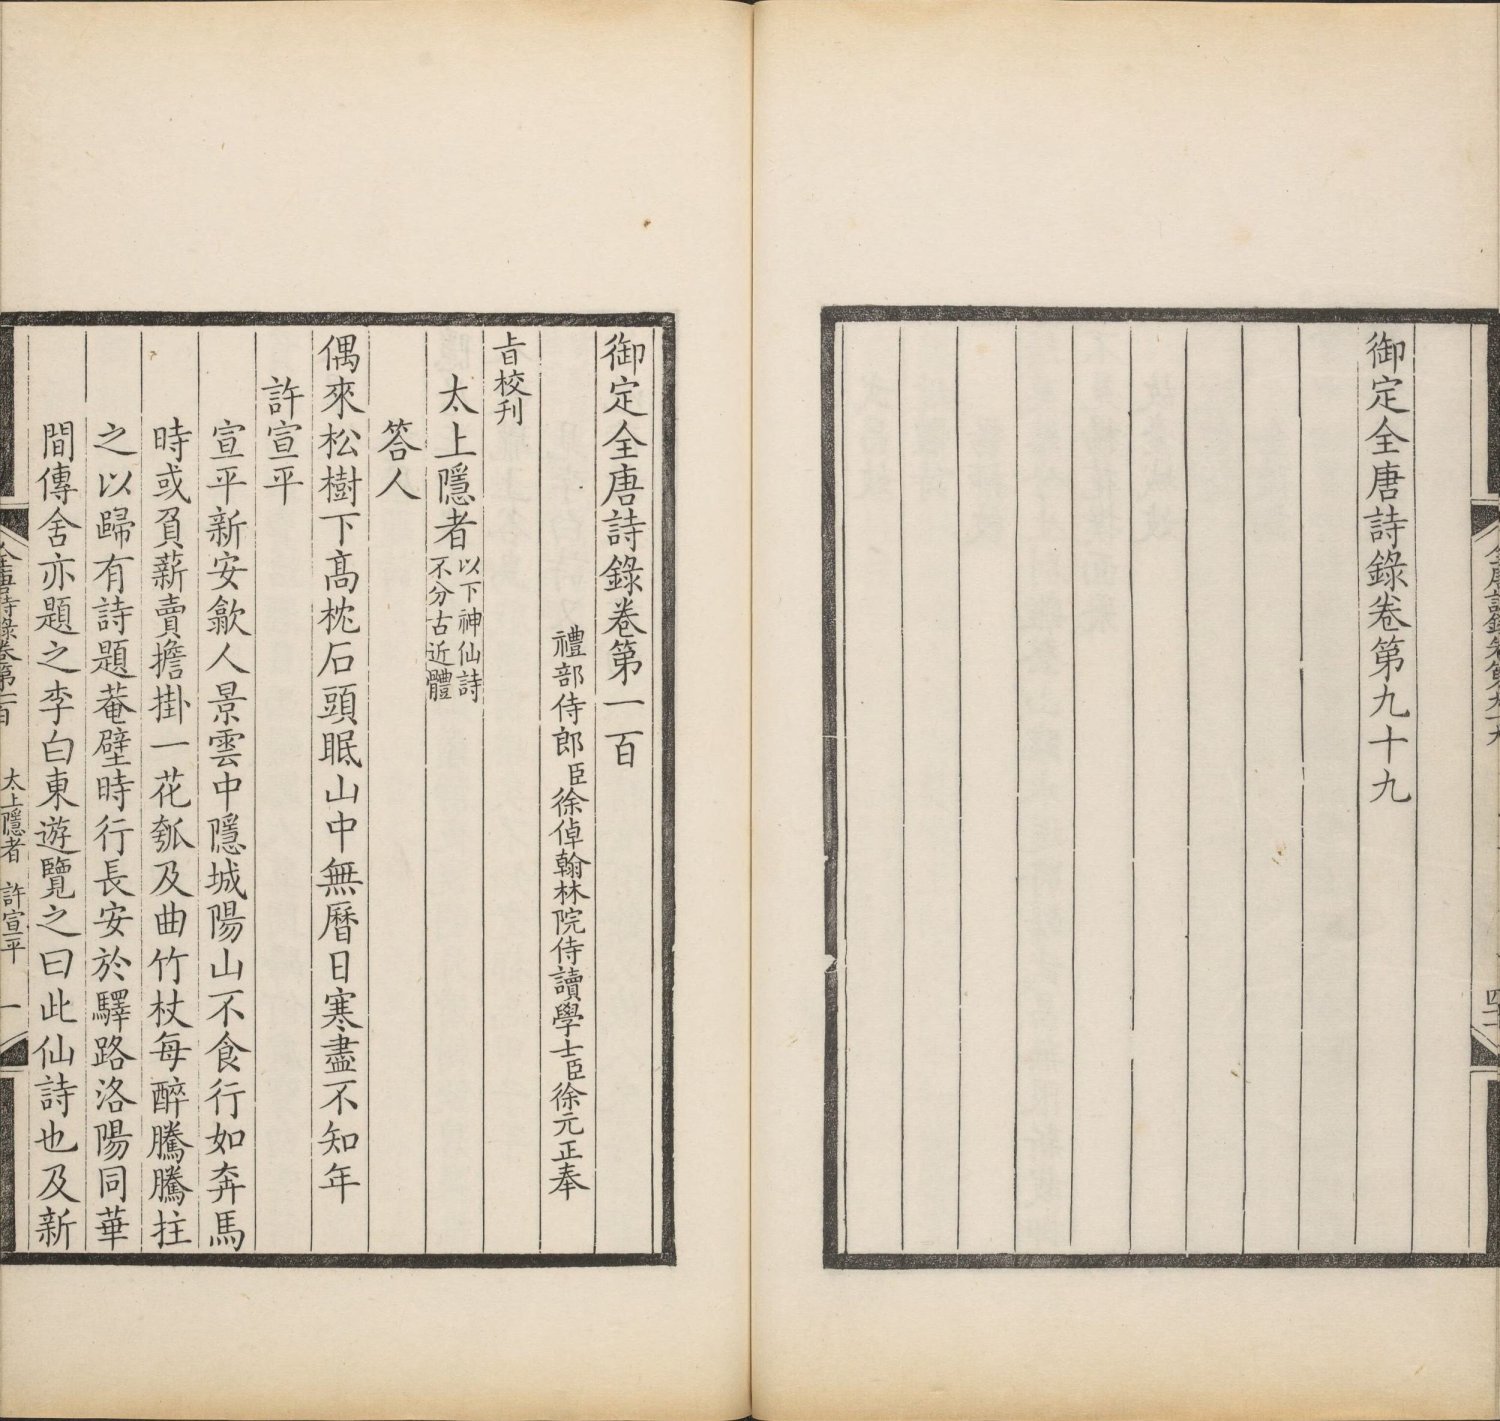 御定全唐詩錄卷第九十九
御定全唐詩錄卷第一百
禮部侍郎臣徐倬翰林院侍讀學士臣徐元正奉
旨校刊
太上隱者以下神仙詩不分古近體
答人
偶來松樹下髙枕石頭眠山中無曆日寒盡不知年
許宣平
宣平新安歙人景雲中隱城陽山不食行如奔馬
時或負薪賣擔掛一花瓠及曲竹杖每醉騰騰拄
之以歸有詩題菴壁時行長安於驛路洛陽同華
間傳舍亦題之李白東遊覽之曰此仙詩也及新
全唐詩錄卷第一百 太上隱者 許宣平 一